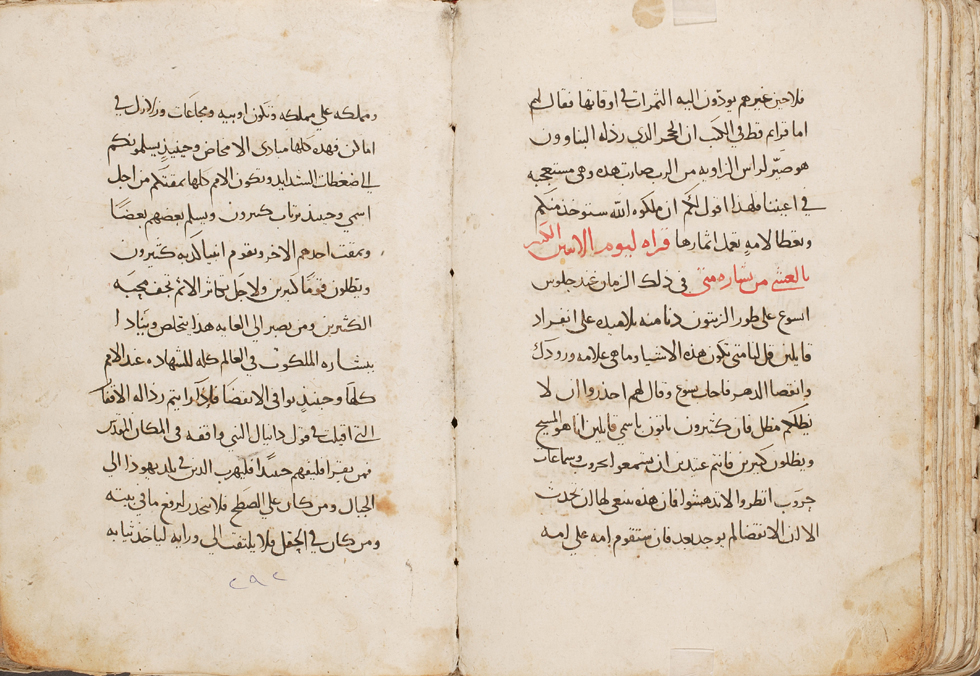 فلاحين غيرهم يودون اليه الثمرات في اوقاتها فقال لهم
اما قراتم قط في الكتب ان الحجر الدي رذله البناوون
هو صيّر لراس الزاويه من الرب صارت هده وهي مستعجبه
في اعيننا فلهذا اقول لكم ان ملكوه الله ستوخذ منكم
وتعطا لامه تعمل اثمارها قراه ليوم الاتنين الكبير
بالعشي من بشاره متى في ذلك الزمان عند جلوس
ايسوع على طور الزيتون دنا منه تلاميده على انفراد
قايلين قل لنا متى تكون هذه الاشيا وما هي علامه ورودك
وانقضا الدهر فاجاب يسوع وقال لهم احذروا ان لا
يظلكم مظل فان كثيرون ياتون باسمي قايلين انا هو المسيح
ويظلون كثيرين فانتم عتيدين ان تسمعوا بحروب وسماعات
حروب انظروا لا تندهشوا فان هذه ينبغي لها ان تحدث
الا ان الانقضا لم يوجد بعد فان ستقوم امه على امه
ومملكه على مملكه وتكون اوبيه ومجاعات وزلازل في
اماكن فهده كلها مبادى الامخاض وحينيذ يسلمونكم
الى ضغطات الشدايد وتكون الامم كلها بمقتكم من اجل
اسمي وحينيذ يرتاب كثيرون ويسلم بعضهم بعضًا
ويمقت احدهم الاخر ويقوم انبيا كدبه كثيرون
ويظلون قومًا كثيرين ولاجل تكاثر الاثم تجف محبه
الكثيرين ومن يصبر الى الغايه هذا يتخلص وينادا
ببشاره الملكوت في العالم كله للشهاده عند الامم
كلها وحينيذ يوافي الانقضا فاذا رايتم رذاله الاقفار
التي اقيلت في قول دانيال النبي واقفه في المكان المقدّس
فمن يقرا فليفهم حينيدًا فليهرب الدين في بلد يهوذا الى
الجبال ومن كان على الصطح فلا ينحدر ليرفع ما في بيته
ومن كان في الحقل فلا يلتفت الى ورايه لياخذ ثيابه
٢٩٢